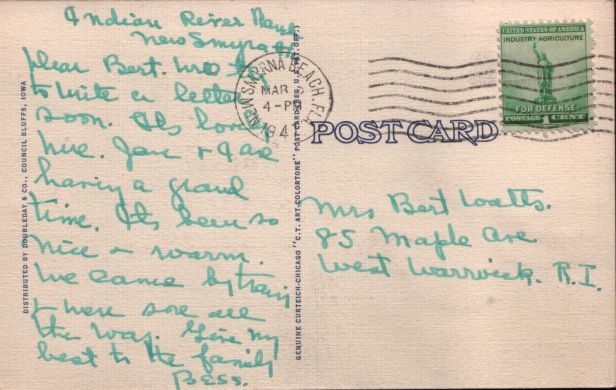 Indian River Bank
New Smyrna
Dear Bert. Will try
to write a letter
soon. Its lovely
here. Jane & I are
having a grand
time. Its been so
nice & warm.
We came by train
& were sore all
the way. Give my
best to the family
Bess.
DISTRIBUTED BY DOUBLEDAY & CO., COUNCIL BLUFFS, IOWA
GENUINE CURTEICH-CHICAGO "C.T. ART-COLORTONE" POST CARD (REG. U.S. PAT. OFF.)
NEW SMYRNA BEACH, FLA.
MAR
4-PM
194
UNITED STATES OF AMERICA
INDUSTRY-AGRICULTURE
FOR DEFENSE
POSTAGE 1 CENT
POST CARD
Mrs Bert Watts.
85 Maple Ave
West Warwick. R.I.